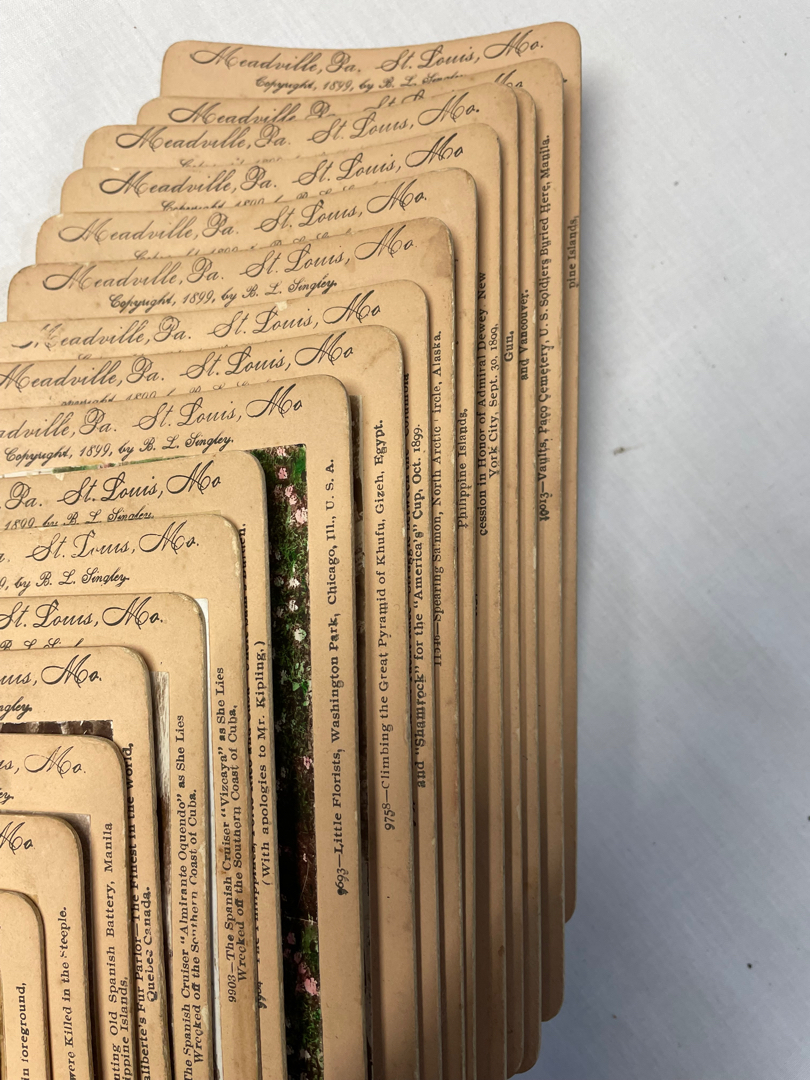 Meadville, Pa. St. Louis, Mo.
Copyright, 1899, by B. L. Singley
Meadville, Mo
Meadville, Pa. St. Louis, Mo.
Meadville, Pa. St. Louis, Mo
Meadville, Pa. St. Louis, Mo.
Meadville, Pa. St. Louis, Mo.
Copyright, 1899, by B. L. Singley.
Meadville, Pa. St. Louis, Mo
Meadville, Pa. St. Louis, Mo
adville, Pa. St. Louis, Mo
Copyright, 1899, by B. L. Singley.
Pa. St. Louis, Mo
1899, by B. L. Singley.
St. Louis, Mo.
9, by B. L. Singley.
St. Louis, Mo.
uis, Mo.
ngley.
s, Mo.
Mo
pine Islands,
10013—Vaults, Paco Cemetery, U. S. Soldiers Buried Here, Manila.
and Vancouver.
Gun,
cession in Honor of Admiral Dewey New
York City, Sept. 30, 1899.
Philippine Islands,
11348—Spearing Salmon, North Arctic Circle, Alaska.
and "Shamrock" for the "America's" Cup, Oct. 1899.
9758—Climbing the Great Pyramid of Khufu, Gizeh, Egypt.
9693—Little Florists, Washington Park, Chicago, Ill., U. S. A.
(With apologies to Mr. Kipling.)
9903—The Spanish Cruiser "Vizcaya" as She Lies
Wrecked off the Southern Coast of Cuba,
The Spanish Cruiser "Almirante Oquendo" as She Lies
Wrecked off the Southern Coast of Cuba.
aliberte's Fur Parlor—The Finest in the World,
Quebec Canada.
nting Old Spanish Battery, Manila
ippine Islands.
were Killed in the Steeple.
in foreground,